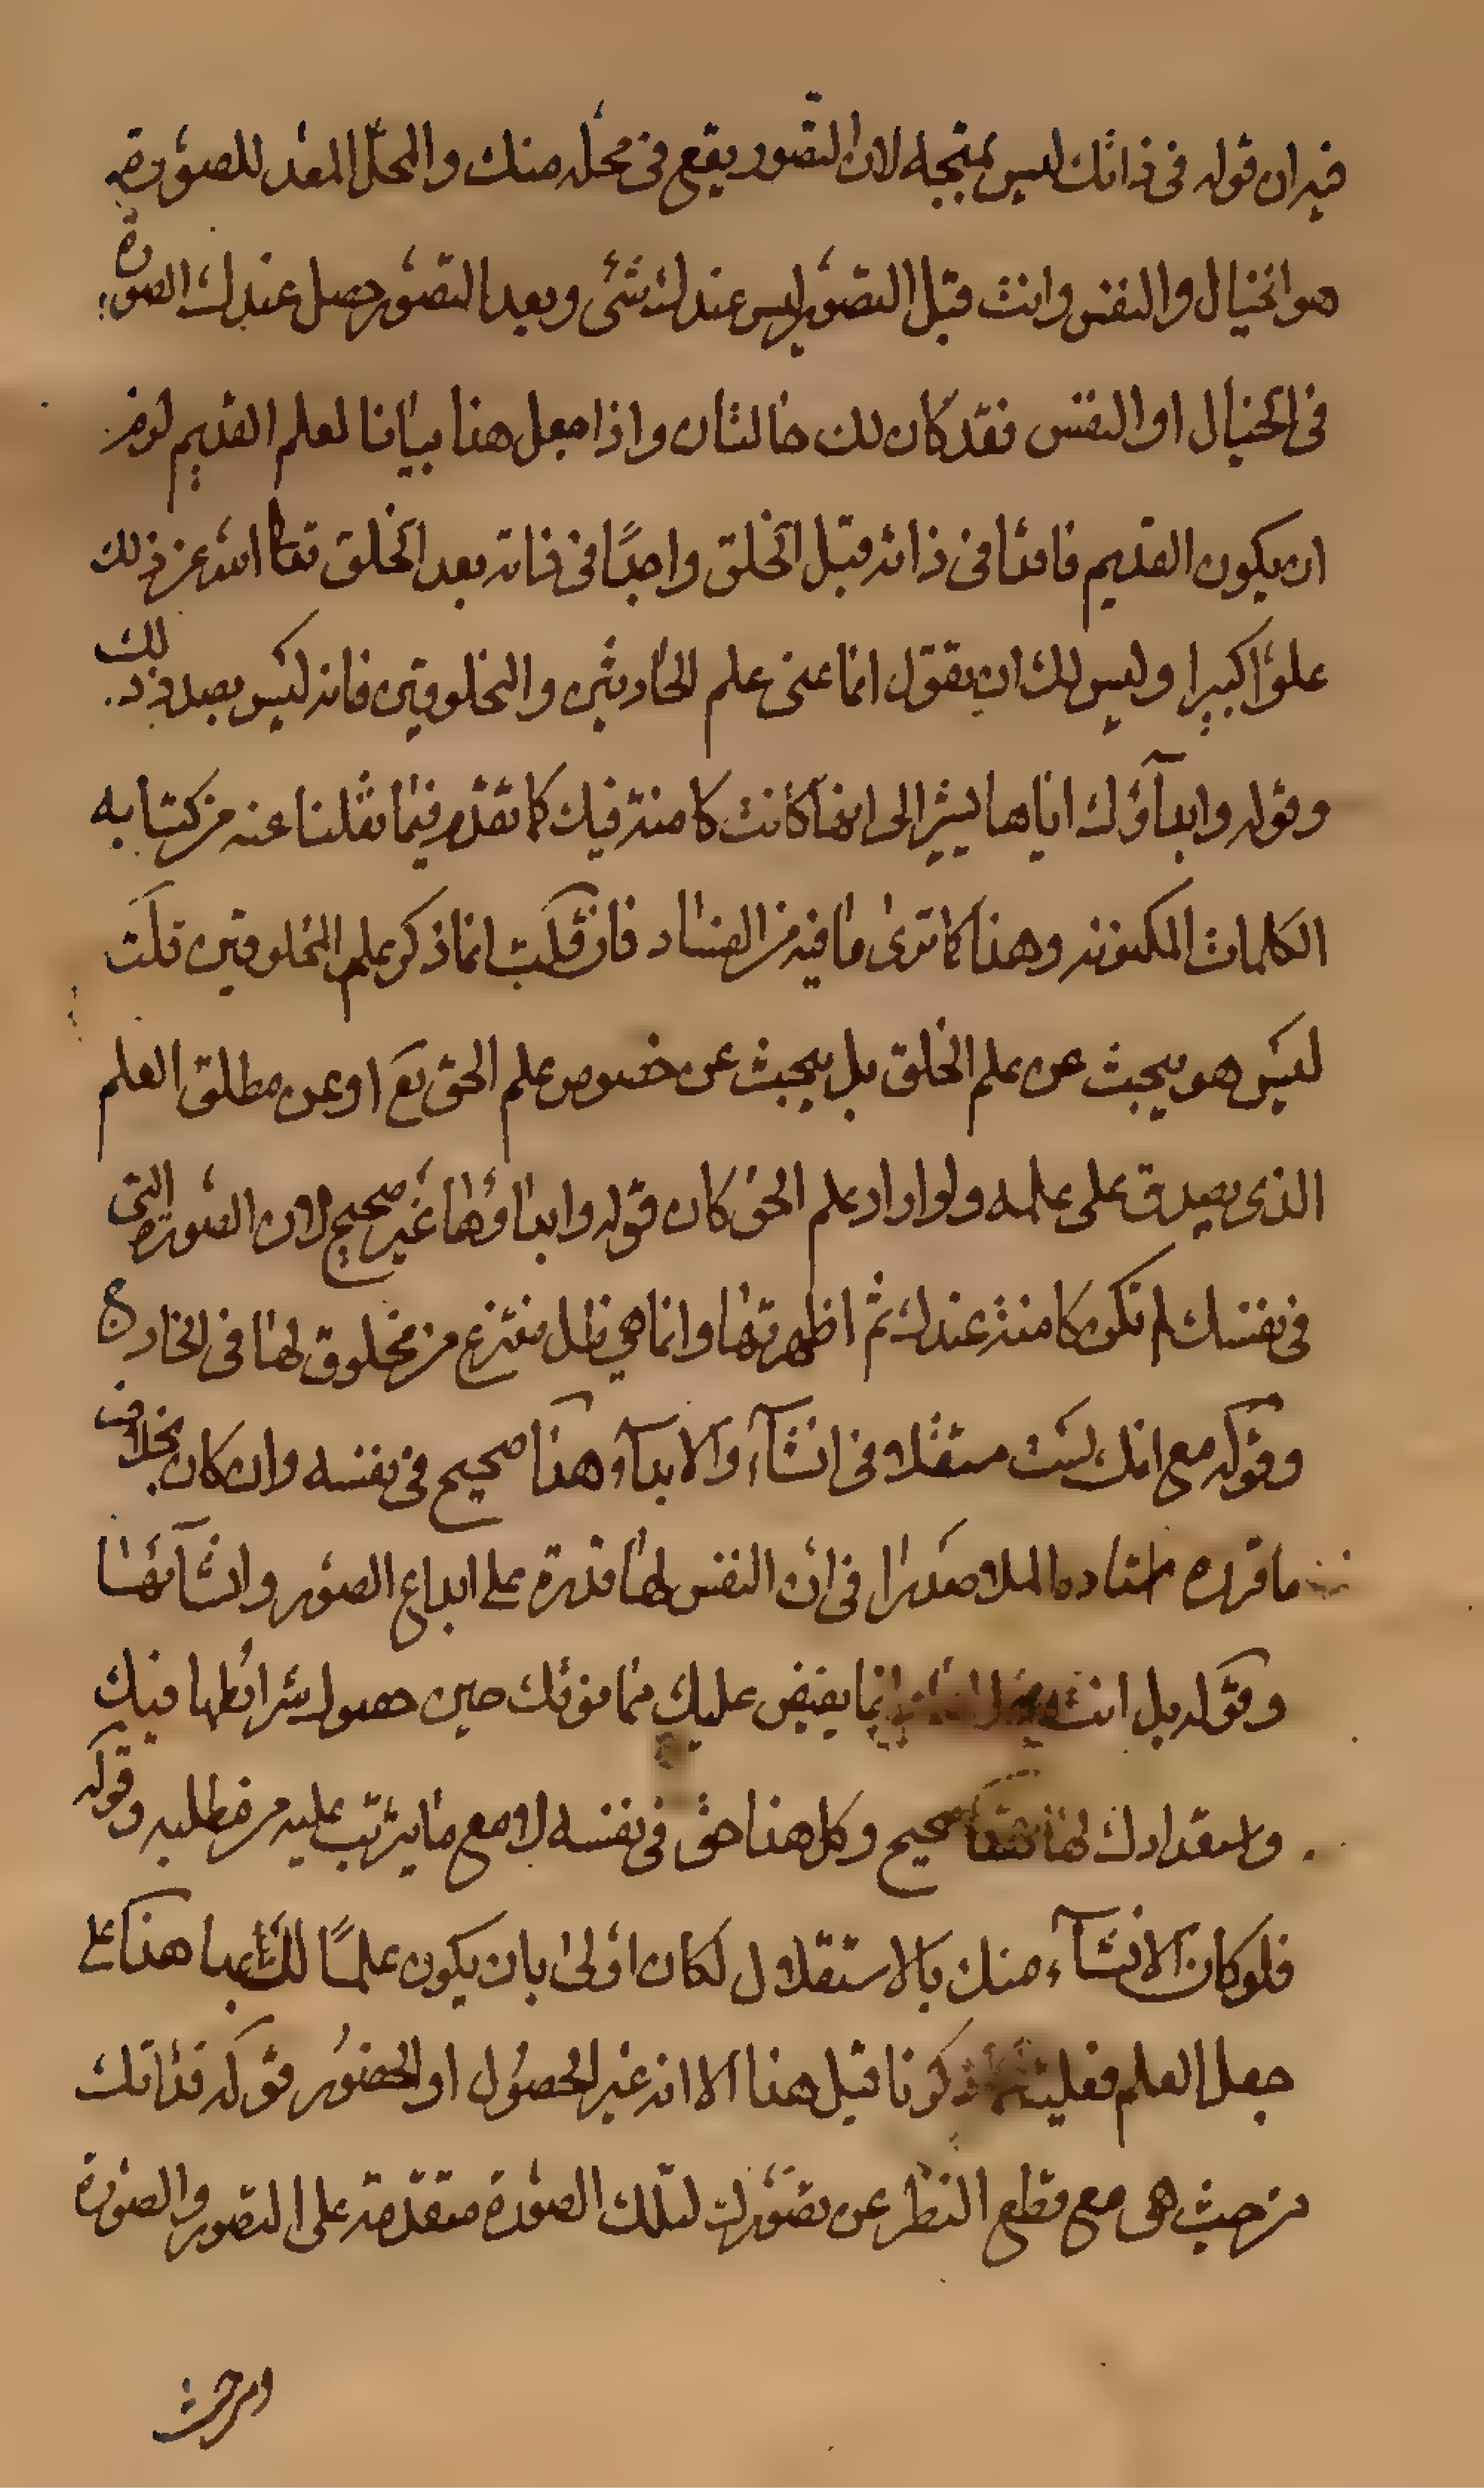 فيه ان قوله فى ذاتك ليس بمتجه لان التصور يقع فى محله منك والمحل المعد للصورة
هو الخيال والنفس وانت قبل التصور ليس عندك شئ وبعد التصور حصل عندك الصورة
فى الخيال او النفس فقد كان لك حالتان واذا جعل هذا بيانا لعلم القديم لزم
ان يكون القديم فاقدا فى ذاته قبل الخلق واجدًا فى ذاته بعد الخلق تعا الله عن ذلك
علوّا كبيرا وليس لك ان يقول انما عنى علم الحادثين والمخلوقين فانه ليس بصدد ذلك
وقوله وابدآؤك اياها يشير الى انها كانت كامنة فيك كما تقدم فيما نقلنا عنه من كتابه
الكلمات المكنونه وهذا كما ترى ما فيه من الفساد فان قلت انما ذكر علم المخلوقين قلت
ليس هو يبحث عن علم الخلق بل يبحث عن خصوص علم الحق تع او عن مطلق العلم
الذى يصدق على علمه ولو اراد علم الحق كان قوله وابداؤها غير صحيح لان الصورة التى
فى نفسك لم تكن كامنة عندك ثم اظهرتها وانما هي ظل منتزع من مخلوق لها فى الخارج
وقوله مع انك لست مستقلا فى انشآء والابدآء وهذا صحيح فى نفسه وان كان بخلاف
ما قرره استاده الملا صدرا فى ان النفس لها قدرة على ابداع الصور وانشآئها
وقوله بل انت انما يفيض عليك مما فوقك حين حصول شرائطها فيك
واستعدادك لها صحيح وكل هذا حق فى نفسه لا مع ما يترتب عليه من مطلبه وقوله
فلو كان الانشآء منك بالاستقلال لكان اولى بان يكون علمًا لك هذا على
جعل العلم فعليته ذكرنا قبل هذا الا انه غير الحصول او الحضور قوله فذاتك
من حيث هى مع قطع النظر عن تصورك لتلك الصورة متقدمة على التصور والصورة
ومن حيث